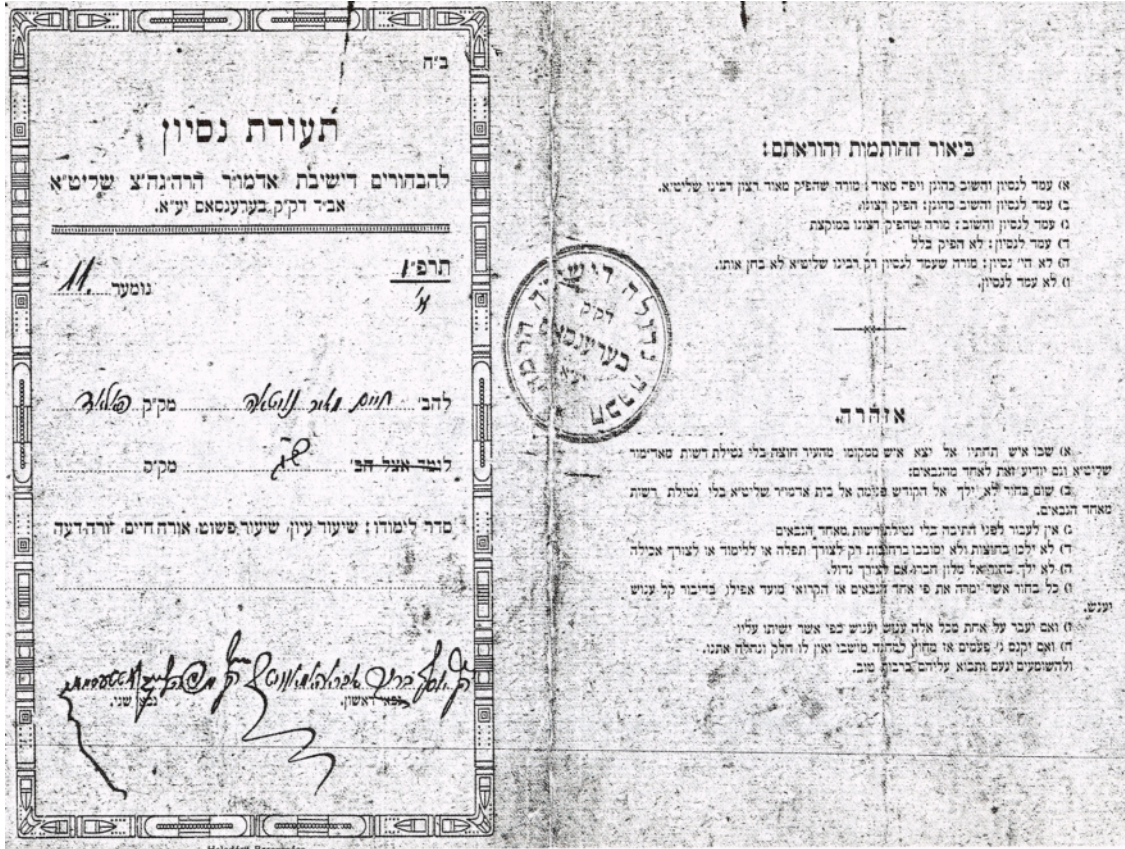 ב״ה
תעודת נסיון
להבחורים דישיבת אדמו״ר הרהגה״צ שליט״א
אב״ד דק״ק בערענסאס יע״א.
תרפ״ו
א׳
נומער 11.
להב׳ חיים מאיר מק״ק
לומד אצל הב׳ מק״ס
סדר לימודו: שיעור עיון, שיעור פשוט, אורח חיים, יורה דעה
גבאי ראשון. גבאי שני.
ביאור החותמות והוראתם:
א) עמד לנסיון והשיב כהוגן ויפה מאוד: מורה שהפיק מאוד רצון רבינו שליט״א.
ב) עמד לנסיון והשיב כהוגן: הפיק רצונו.
ג) עמד לנסיון והשיב: מורה שהפיק רצונו במוקצת
ד) עמד לנסיון: לא הפיק כלל
ה) לא הי׳ נסיון: מורה שעמד לנסיון רק רבינו שליט״א לא בחן אותו.
ו) לא עמד לנסיון.
דק״ק
בערענסאס
אזהרה.
א) שבו איש תחתיו אל יצא איש ממקומו מהעיר חוצה בלי נטילת רשות מאדימור
שליט״א וגם יודיע זאת לאחד מהגבאים:
ב) שום בחור לא ילך אל הקודש פנימה אל בית אדמו״ר שליט״א בלי נטילת רשות
מאחד הגבאים.
ג) אין לעבור לפני התיבה בלי נטילת רשות מאחד הגבאים
ד) לא ילכו בחוצות ולא יסובבו ברחובות רק לצורך תפלה או ללימוד או לצורך אכילה
ה) לא ילך בחור אל מלון חברו אם לצורך גדול.
ו) כל בחור אשר ימרה את פי אחד הגבאים או הקרואי מועד אפילו בדיבור קל ענוש
יענש.
ז) ואם יעבור על אחת מכל אלה ענוש יענוש כפי אשר ישיתו עליו
ח) ואם יקנס ג׳ פעמים אז מחוץ למחנה מושבו ואין לו חלק ונחלה אתנו.
ולהשומעים ינעם ותבוא עליהם ברכת טוב.